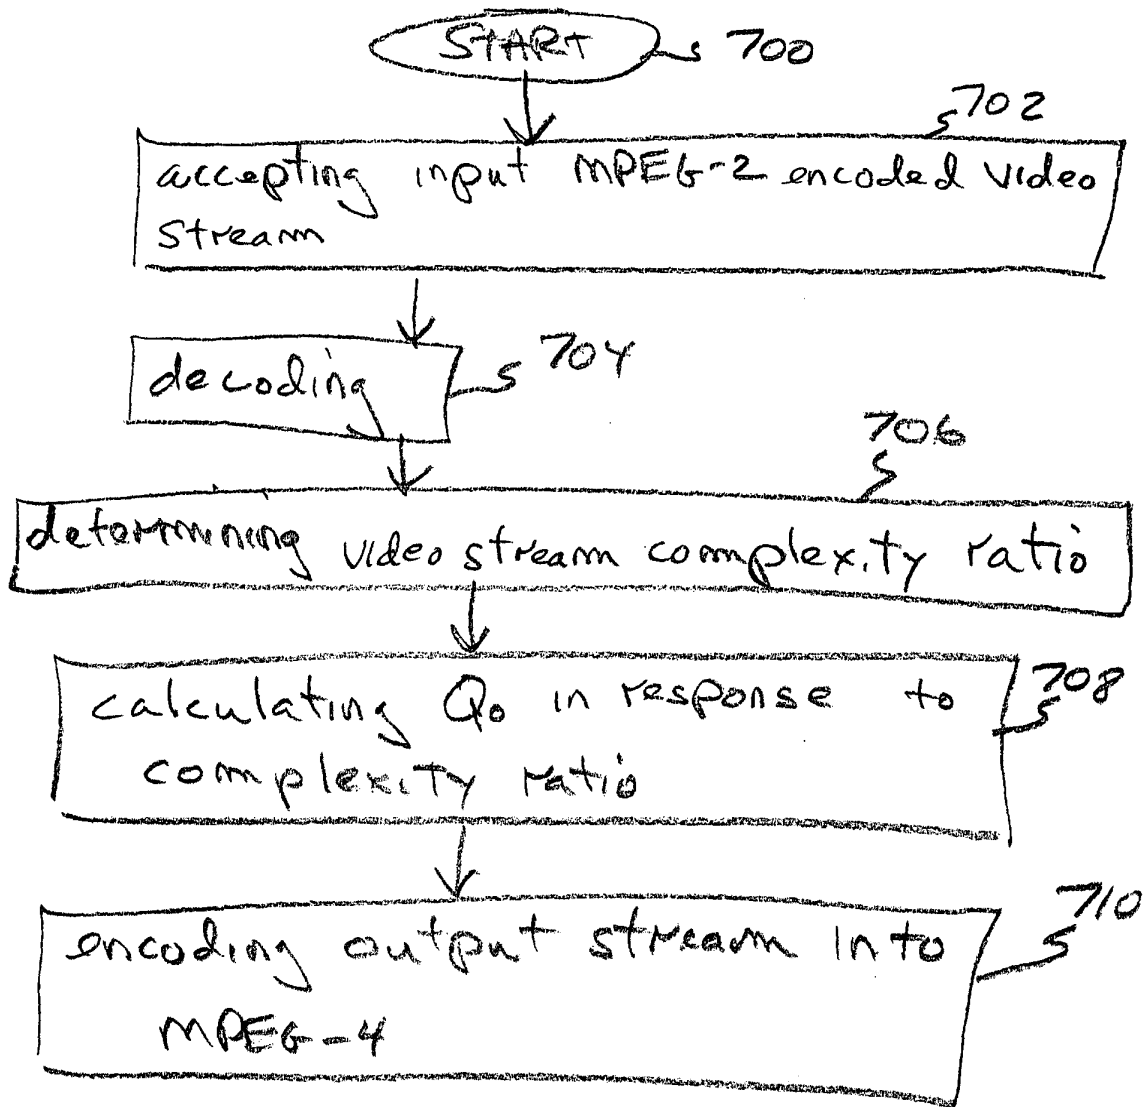 START 700
702
accepting input MPEG-2 encoded video
stream
decoding 704
706
determining video stream complexity ratio
calculating Qo in response to 708
complexity ratio
710
encoding output stream into
MPEG-4